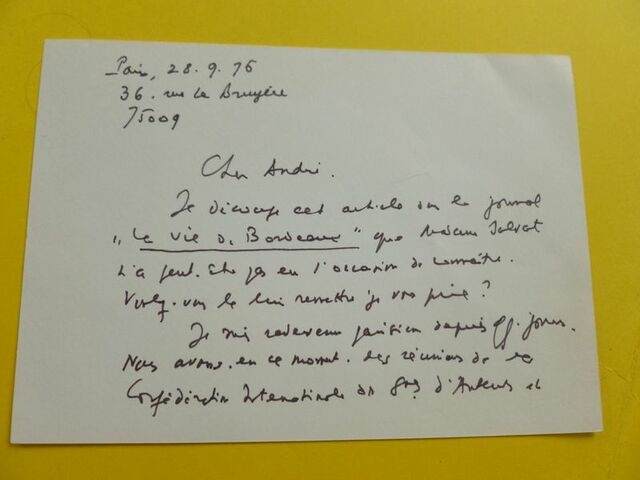 Paris, 28.9.76
36. rue La Bruyère
75009
Cher André.
Je découpe cet article sur le journal
"La Vie de Bordeaux" que Madame Salvat
n'a peut-être pas eu l'occasion de connaître.
Voulez-vous le lui remettre je vous prie ?
Je suis redevenu parisien depuis qq. jours.
Nous avons. en ce moment. des réunions de la
Confédération Internationale des Stés d'Auteurs et